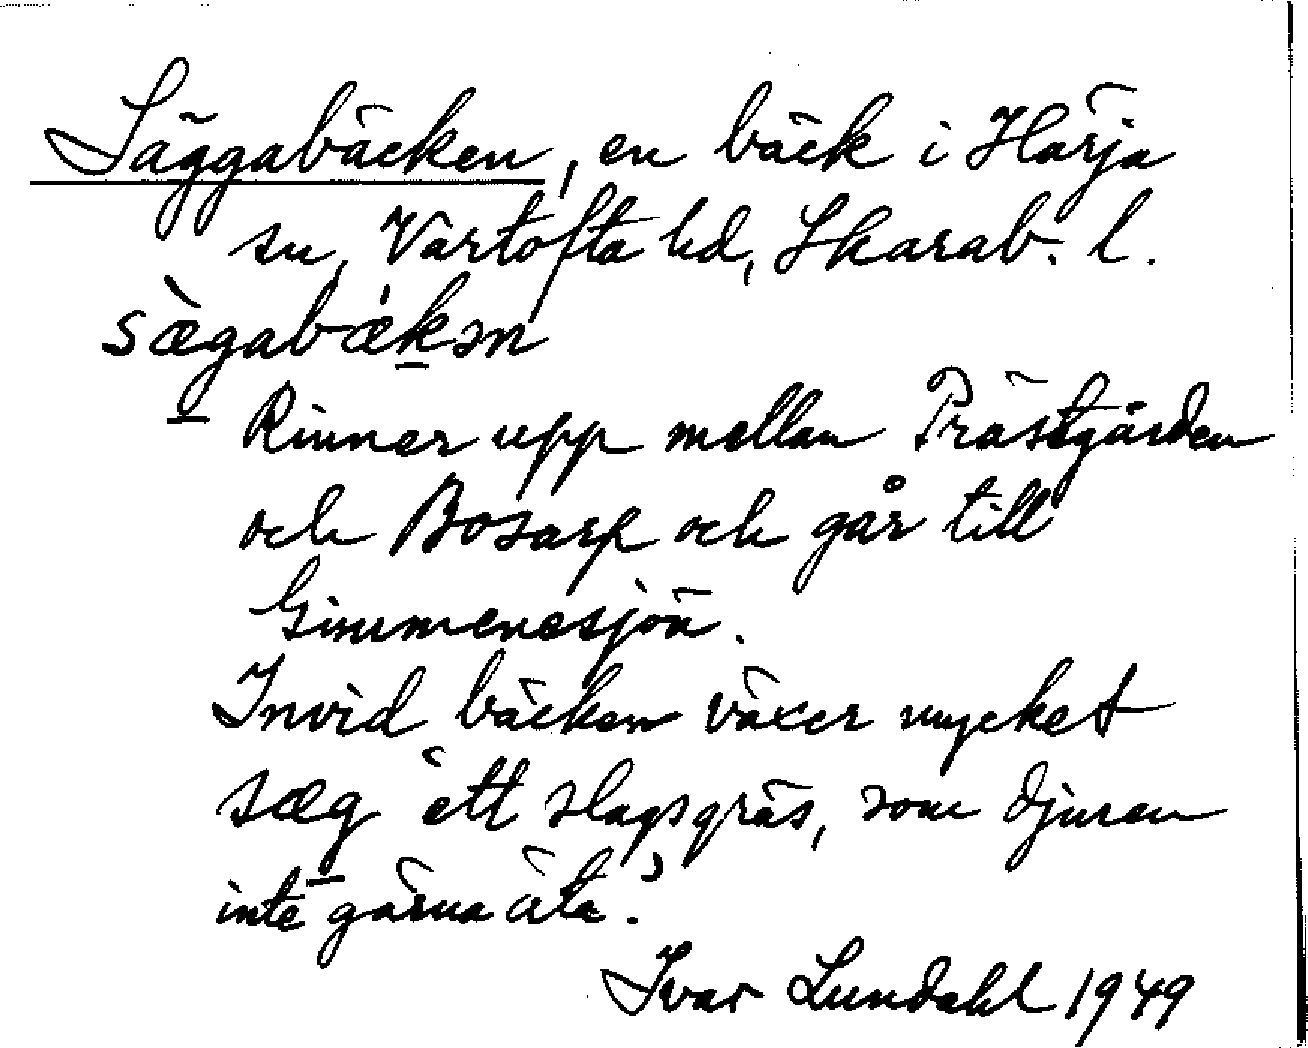 Säggabäcken, en bäck i Härja
sn, Vartofta hd, Skarab. l.
sæ̀gabæ̀kən
Rinner upp mellan Prästgården
och Bosarp och går till
Gimmenesjön.
Invid bäcken växer mycket
sæg ‘ett slags gräs, som djuren
inte gärna äta’.
Ivar Lundahl 1949